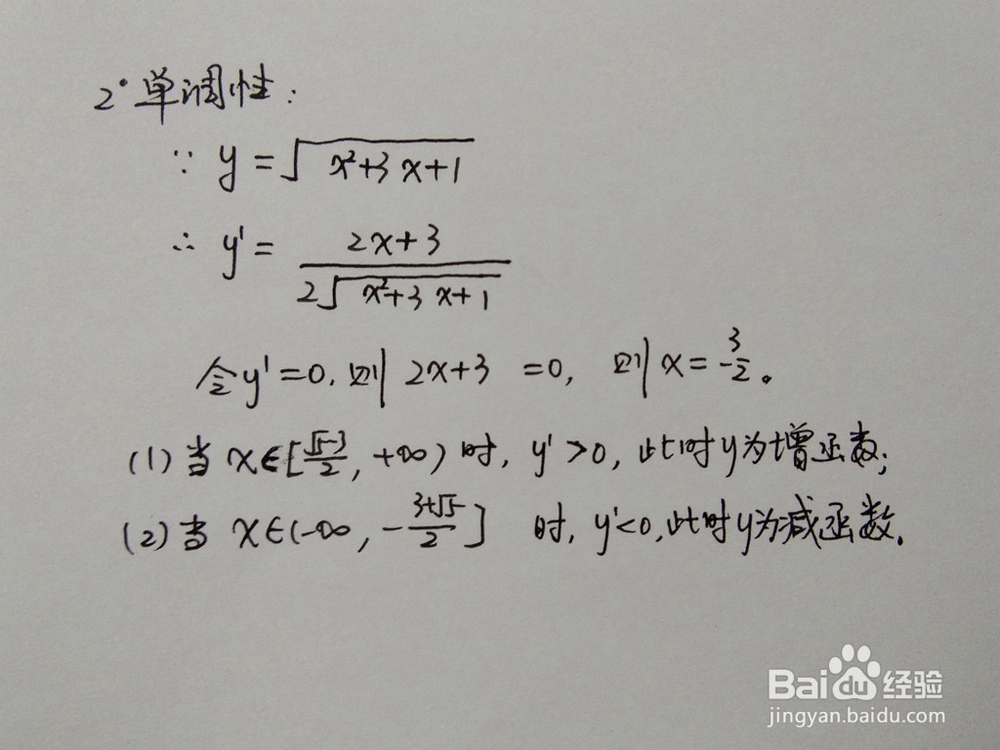 2° 单调性:
∵ y = √(x²+3x+1)
∴ y' = (2x+3)/(2√(x²+3x+1))
令y'=0, 则 2x+3 =0, 则 x = -3/2。
(1) 当 x∈[(√5-3)/2, +∞) 时, y'>0, 此时y为增函数;
(2) 当 x∈(-∞, -(3+√5)/2] 时, y'<0, 此时y为减函数.
Baidu 经验
jingyan.baidu.com